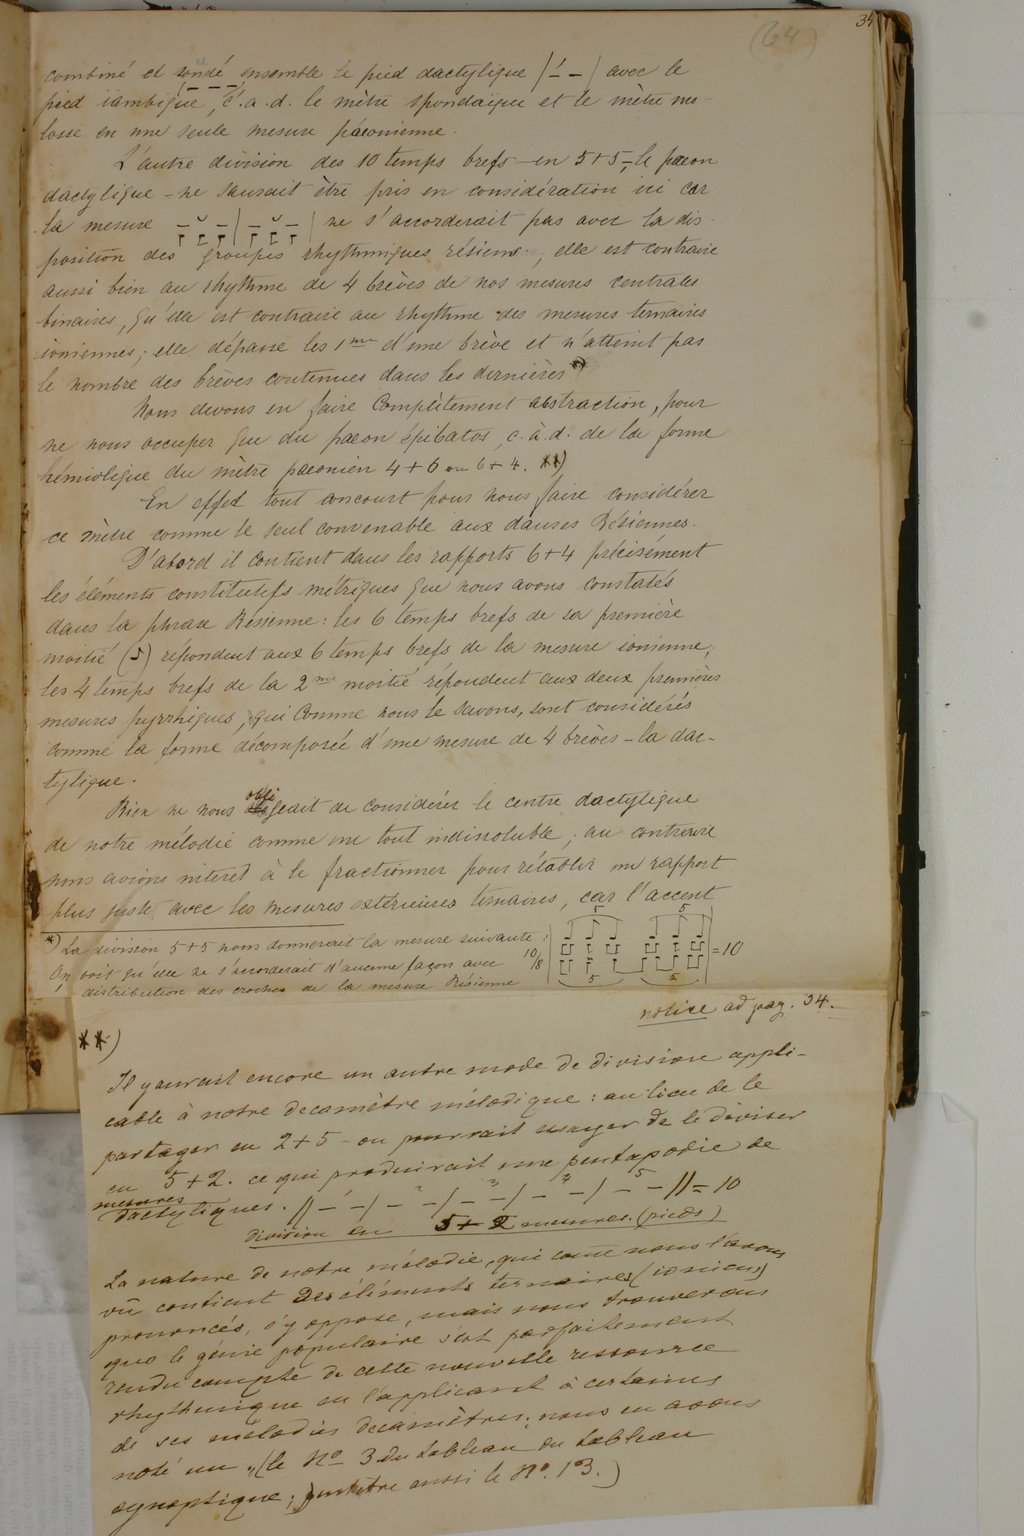 34
(64)
combiné et soudé ensemble le pied dactylique |–́ –| avec le
pied iambique, c.a.d. le mètre spondaïque et le mètre mo-
losse en une seule mesure paeonienne.
L'autre division des 10 temps brefs – en 5+5, le paeon
dactylique – ne saurait être pris en considération ici car
la mesure – ᴗ – | – ᴗ – | ne s'accorderait pas avec la dis-
position des groupes rhythmiques résiens, elle est contraire
aussi bien au rhythme de 4 brèves de nos mesures centrales
binaires, qu'elle est contraire au rhythme des mesures ternaires
ioniennes; elle dépasse les 1mes d'une brève et n'atteint pas
le nombre des brèves contenues dans les dernières *)
Nous devons en faire complètement abstraction, pour
ne nous occuper que du paeon épibatos, c.à.d. de la forme
hémiolique du mètre paeonien 4+6 ou 6+4. **)
En effet tout concourt pour nous faire considérer
ce mètre comme le seul convenable aux danses Résiennes.
D'abord il contient dans les rapports 6+4 précisément
les éléments constitutifs métriques que nous avons constatés
dans la phrase Résienne: les 6 temps brefs de sa première
moitié (♪) répondent aux 6 temps brefs de la mesure ionienne,
les 4 temps brefs de la 2me moitié répondent aux deux premières
mesures pyrrhiques, qui comme nous le savons, sont considérés
comme la forme décomposée d'une mesure de 4 brèves – la dac-
tylique.
Rien ne nous obligeait de considérer le centre dactylique
de notre mélodie comme un tout indissoluble; au contraire
nous avions interet à le fractionner pour rétablir un rapport
plus juste avec les mesures extérieures ternaires, car l'accent
*) La division 5+5 nous donnerait la mesure suivante: 10/8 = 10
On voit qu'elle ne s'accorderait d'aucune façon avec
distribution des croches de la mesure Résienne
notice ad pag. 34.
**)
Il y aurait encore un autre mode de division appli-
cable à notre decamètre mélodique: au lieu de le
partager en 2+5 – on pourrait essayer de le diviser
en 5+2. ce qui produirait une pentapodie de
mesures
dactyliques. || – –́ | – –² | – –³ | – –⁴ | – –⁵ || = 10
division en 5+2 mesures. (pieds)
La nature de notre mélodie, qui come nous l'avons
vu contient des éléments ternaires (ioniens)
prononcés, s'y oppose, mais nous trouverons
que le génie populaire s'est parfaitement
rendu compte de cette nouvelle ressource
rhythmique en l'applicant à certains
de ses mélodies decamètres; nous en avons
noté un „(le No 3 du tableau du tableau
synoptique; peut-être aussi le No. 13.)